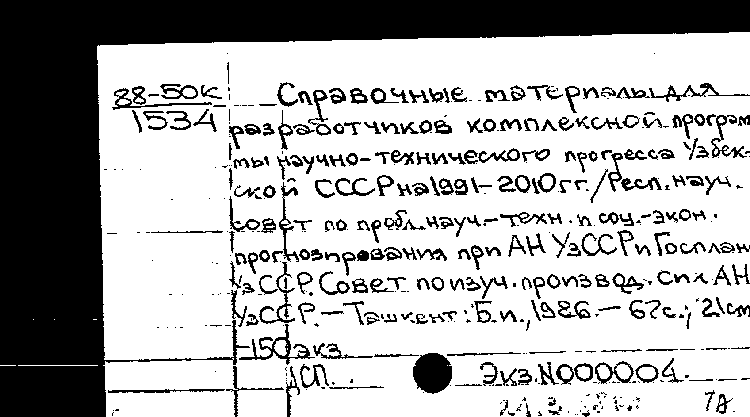 88-50К
1534
Справочные материалы для
разработчиков комплексной програм
мы научно-технического прогресса Узбек-
ской СССР на 1991-2010гг./Респ. науч.
совет по пробл. науч.-техн. и соц.-экон.
прогнозирования при АН УзССР и Госплан
УзССР. Совет по изуч. производ. сил АН
УзССР. - Ташкент: Б.и., 1986. - 67с.; 21см
-150 экз.
ДСП.
Экз.N000004.